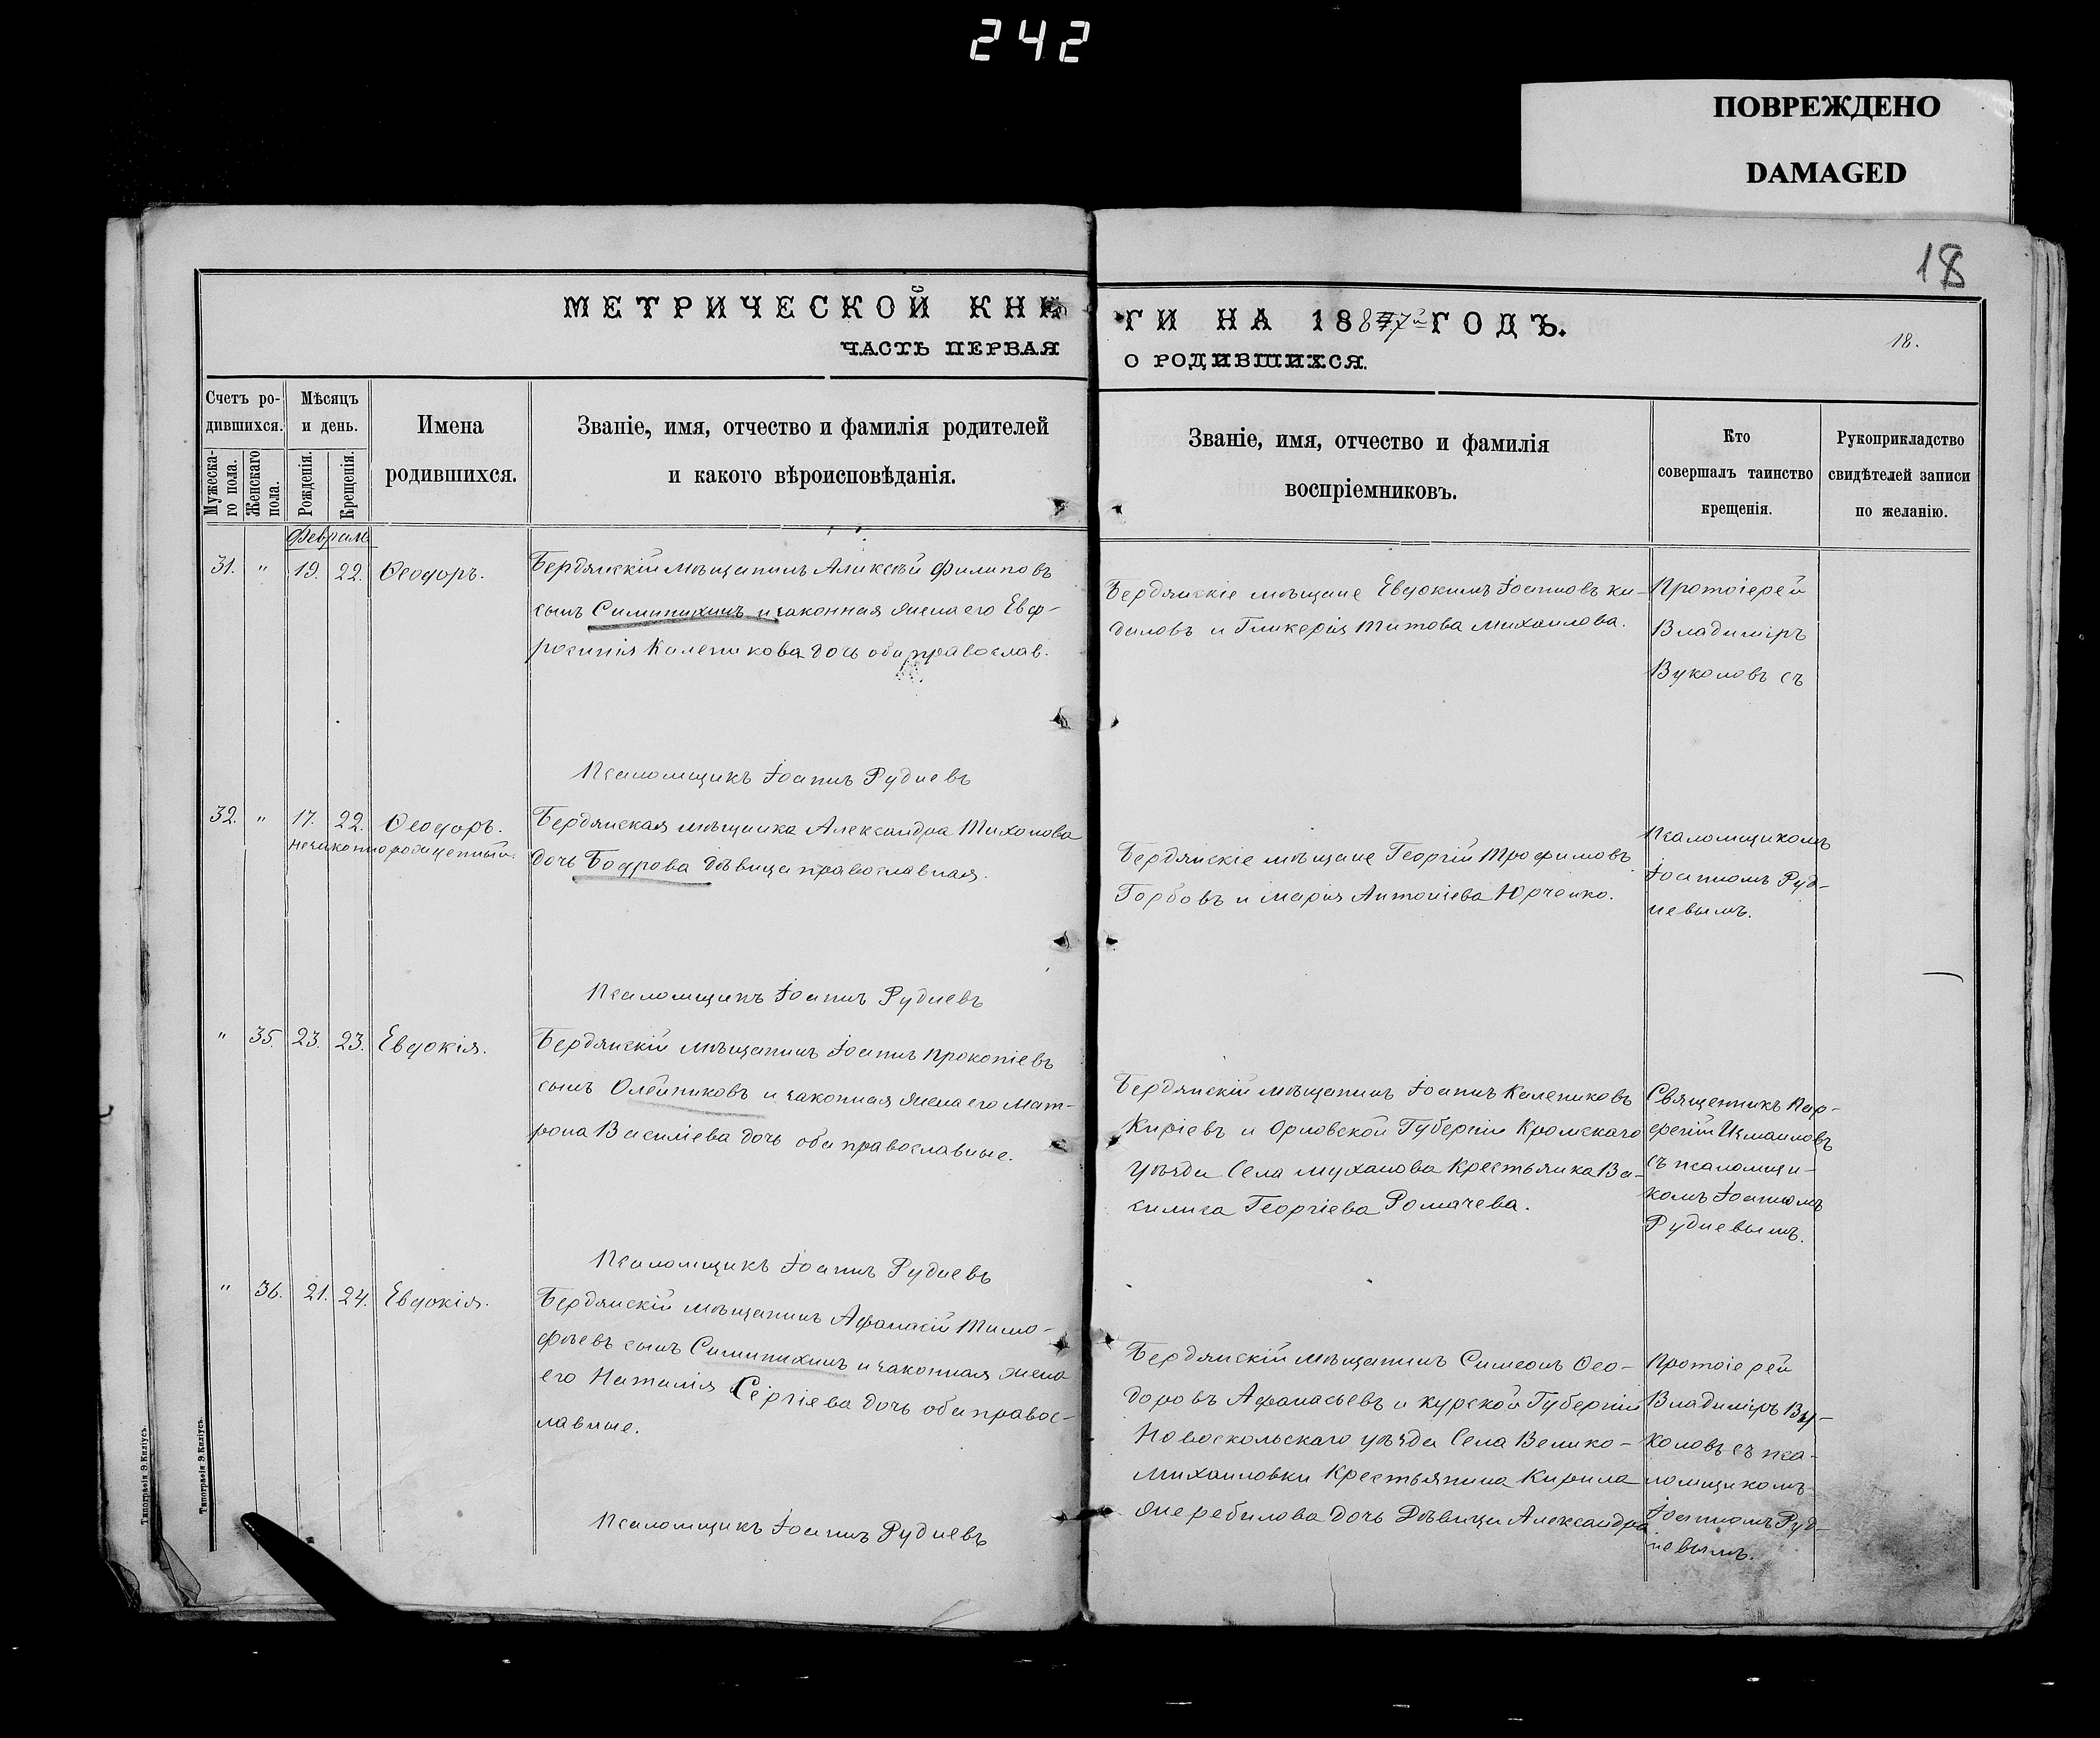 242
ПОВРЕЖДЕНО
DAMAGED
18
МЕТРИЧЕСКОЙ КНИ
ГИ НА 1887й ГОДЪ.
ЧАСТЬ ПЕРВАЯ
О РОДИВШИХСЯ.
18.
Счетъ ро-
дившихся.
Мужеска-
го пола.
Женскаго
пола.
Мѣсяцъ
и день.
Рожденія.
Крещенія.
Имена
родившихся.
Званіе, имя, отчество и фамилія родителей
и какого вѣроисповѣданія.
Званіе, имя, отчество и фамилія
воспріемниковъ.
Кто
совершалъ таинство
крещенія.
Рукоприкладство
свидѣтелей записи
по желанію.
Февраль
31. " 19. 22. Ѳеодоръ.
Бердянскій мѣщанинъ Аликсѣй Филиповъ
сынъ Симинихинъ и законная жена его Евф-
росинія Калепикова дочь оба православ.
Псаломщикъ Іоаннъ Рудневъ
Бердянскіе мѣщане Евдокимъ Іоанновъ ки-
даловъ и Гликерія Титова Михаилова.
Протоіерей
Владиміръ
Вуколовъ съ
32. " 17. 22. Ѳеодоръ.
незаконнорожденный.
Бердянская мѣщанка Александра Тихонова
дочь Бодрова дѣвица православная.
Псаломщикъ Іоаннъ Рудневъ
Бердянскіе мѣщане Георгій Трофимовъ
Горбовъ и Марія Антоніева Юрченко.
псаломщикомъ
Іоанномъ Руд-
невымъ.
" 35. 23. 23. Евдокія.
Бердянскій мѣщанинъ Іоаннъ Прокопіевъ
сынъ Олейниковъ и законная жена его Мат-
рона Василіева дочь оба православные.
Псаломщикъ Іоаннъ Рудневъ
Бердянскій мѣщанинъ Іоаннъ Калепиковъ
Киріевъ и Орловской Губерніи Кромскаго
уѣзда Села Муханова Крестьянка Ва-
силиса Георгіева Ромачева.
Священникъ Пар-
феній Измаиловъ
съ псаломщи-
комъ Іоанномъ
Рудневымъ.
" 36. 21. 24. Евдокія.
Бердянскій мѣщанинъ Афанасій Тимо-
фѣевъ сынъ Симинихинъ и законная жена
его Наталія Сергіева дочь оба правос-
лавные.
Псаломщикъ Іоаннъ Рудневъ
Бердянскій мѣщанинъ Симеонъ Ѳео-
доровъ Афанасьевъ и Курской Губерніи
Новоскольскаго уѣзда Села Велико-
михаиловки Крестьянина Кирила
Жеребилова дочь Дѣвица Александра
Протоіерей
Владиміръ Ву-
коловъ съ пса-
ломщикомъ
Іоанномъ Руд-
невымъ.
Типографія Э.Киліусъ.
Типографія Э.Киліусъ.